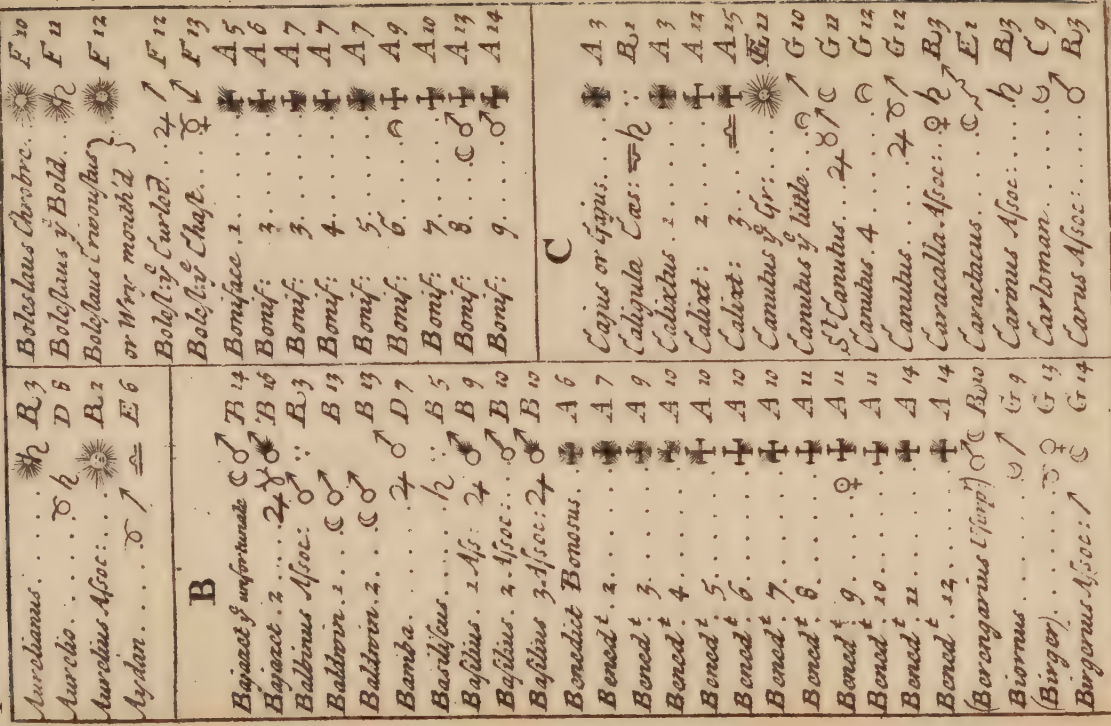 Aurelianus........ ♄ R 3
Aurelio........ ♉ ♄ D 8
Aurelius Aſsoc:.... ☉ R 2
Aydan..... ♉ ↗ ♎ E 6
B
Bajazet yᵉ unfortunate ☾ ♂ B 14
Bajazet 2.... ♃ ♉ ♂ B 16
Balbinus Aſsoc: ♂ :: R 3
Baldwin. 1... ☾ ♂ B 13
Baldwin. 2... ☾ ♂ B 13
Bamba....... ♃ ♂ D 7
Basiliſcus..... ♄ :: B 5
Baſilius. 1 Aſs: ♃ ♂ B 9
Baſilius. 2. Aſsoc:.. ♂ B 10
Baſilius 3. Aſsoc: ♃ ♂ B 10
Benedict Bonosus. ✠ A 6
Bened ᵗ. 2....... ✠ A 7
Bened ᵗ. 3....... ✠ A 9
Bened ᵗ. 4....... ✠ A 10
Bened ᵗ. 5....... ✠ A 10
Bened ᵗ. 6....... ✠ A 10
Bened ᵗ. 7....... ✠ A 10
Bened ᵗ. 8....... ✠ A 11
Bened ᵗ. 9..... ♀ ✠ A 11
Bened ᵗ. 10....... ✠ A 11
Bened ᵗ. 11....... ✠ A 14
Bened ᵗ. 12....... ✠ A 14
(Berengarius Uſurpʳ) ♂ ☾ R 10
Biornus...... ↗ G 9
(Birger)..... ♉ ♀ G 13
Bergerus Aſsoc: ↗ ☾ G 14
Boleslaus Chrobre.. ☉ F 10
Boleſlaus yᵉ Bold.. ♄ F 11
Boleſlaus Crivouſtus }
or Wry mouth'd } ☉ F 12
Boleſl: yᵉ Curled. ♃ ↗ F 12
Boleſl: yᵉ Chaſt... F 13
Boniface. 1....... ✠ A 5
Bonif: 2....... ✠ A 6
Bonif: 3....... ✠ A 7
Bonif: 4....... ✠ A 7
Bonif: 5....... ✠ A 7
Bonif: 6..... ✠ A 9
Bonif: 7....... ✠ A 10
Bonif: 8.... ☾ ♂ ✠ A 13
Bonif: 9..... ♂ ✠ A 14
C
Cajus or Gajus.... ✠ A 3
Caligula Cæs: ♒ ♄ :: R 1
Calixtus. 1..... ✠ A 3
Calixt: 2..... ✠ A 12
Calixt: 3... ♎ ✠ A 15
Canutus yᵉ Gr:... ☉ E 11
Canutus yᵉ little.. ↗ G 10
Sᵗ Canutus... ♃ ♉ ↗ ☾ G 11
Canutus. 4....... G 12
Canutus.... ♃ ♉ ↗ G 12
Caracalla Aſsoc: ♀ ♄ R 3
Caractacus.... ☾ E 1
Carinus Aſsoc:... ♄ R 3
Carloman....... C 9
Carus Aſsoc:.... ♂ R 3